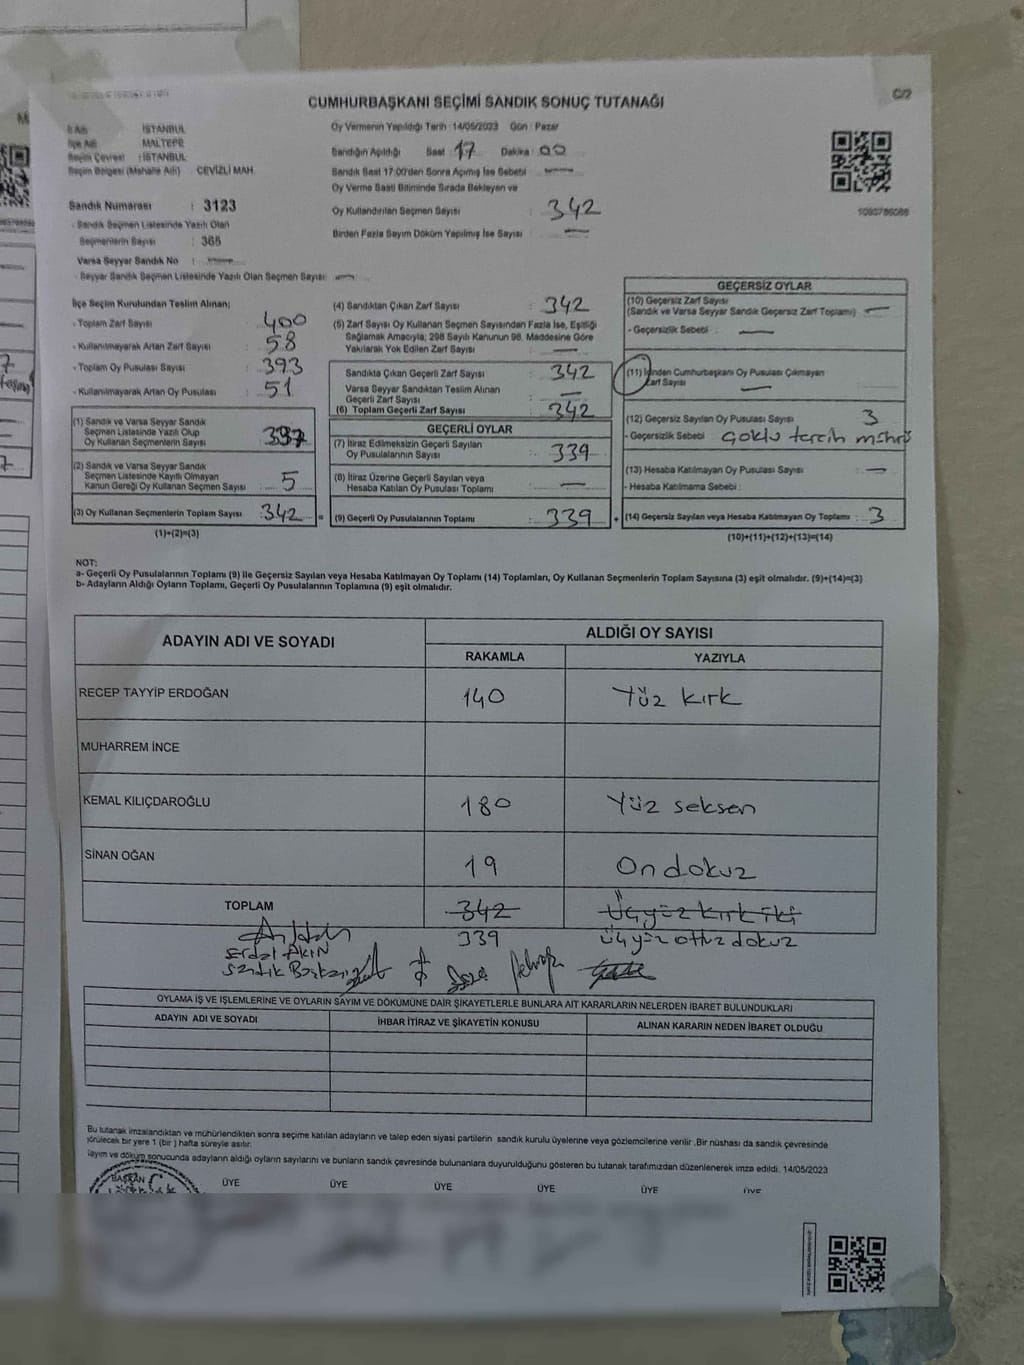 CUMHURBAŞKANI SEÇİMİ SANDIK SONUÇ TUTANAĞI
C/2
İl Adı : İSTANBUL
İlçe Adı : MALTEPE
Seçim Çevresi : İSTANBUL
Seçim Bölgesi (Mahalle Adı) : CEVİZLİ MAH.
Sandık Numarası : 3123
- Sandık Seçmen Listesinde Yazılı Olan
Seçmenlerin Sayısı : 365
Varsa Seyyar Sandık No :
- Seyyar Sandık Seçmen Listesinde Yazılı Olan Seçmen Sayısı:
Oy Vermenin Yapıldığı Tarih : 14/05/2023 Gün : Pazar
Sandığın Açıldığı Saat : 17 Dakika : 00
Sandık Saat 17:00'den Sonra Açılmış İse Sebebi
Oy Verme Saati Bitiminde Sırada Bekleyen ve
Oy Kullandırılan Seçmen Sayısı : 342
Birden Fazla Sayım Döküm Yapılmış İse Sayısı :
İlçe Seçim Kurulundan Teslim Alınan;
- Toplam Zarf Sayısı : 400
- Kullanılmayarak Artan Zarf Sayısı : 58
- Toplam Oy Pusulası Sayısı : 393
- Kullanılmayarak Artan Oy Pusulası : 51
(1) Sandık ve Varsa Seyyar Sandık
Seçmen Listesinde Yazılı Olup
Oy Kullanan Seçmenlerin Sayısı : 337
(2) Sandık ve Varsa Seyyar Sandık
Seçmen Listesinde Kayıtlı Olmayan
Kanun Gereği Oy Kullanan Seçmen Sayısı : 5
(3) Oy Kullanan Seçmenlerin Toplam Sayısı : 342
(1)+(2)=(3)
(4) Sandıktan Çıkan Zarf Sayısı : 342
(5) Zarf Sayısı Oy Kullanan Seçmen Sayısından Fazla İse, Eşitliği
Sağlamak Amacıyla, 298 Sayılı Kanunun 98. Maddesine Göre
Yakılarak Yok Edilen Zarf Sayısı :
Sandıkta Çıkan Geçerli Zarf Sayısı : 342
Varsa Seyyar Sandıktan Teslim Alınan
Geçerli Zarf Sayısı :
(6) Toplam Geçerli Zarf Sayısı : 342
GEÇERLİ OYLAR
(7) İtiraz Edilmeksizin Geçerli Sayılan
Oy Pusulalarının Sayısı : 339
(8) İtiraz Üzerine Geçerli Sayılan veya
Hesaba Katılan Oy Pusulası Toplamı :
(9) Geçerli Oy Pusulalarının Toplamı : 339
GEÇERSİZ OYLAR
(10) Geçersiz Zarf Sayısı
(Sandık ve Varsa Seyyar Sandık Geçersiz Zarf Toplamı)
- Geçersizlik Sebebi :
(11) İçinden Cumhurbaşkanı Oy Pusulası Çıkmayan
Zarf Sayısı
(12) Geçersiz Sayılan Oy Pusulası Sayısı : 3
- Geçersizlik Sebebi Çoklu tercih mührü
(13) Hesaba Katılmayan Oy Pusulası Sayısı :
- Hesaba Katılmama Sebebi :
(14) Geçersiz Sayılan veya Hesaba Katılmayan Oy Toplamı : 3
(10)+(11)+(12)+(13)=(14)
NOT:
a- Geçerli Oy Pusulalarının Toplamı (9) ile Geçersiz Sayılan veya Hesaba Katılmayan Oy Toplamı (14) Toplamları, Oy Kullanan Seçmenlerin Toplam Sayısına (3) eşit olmalıdır. (9)+(14)=(3)
b- Adayların Aldığı Oyların Toplamı, Geçerli Oy Pusulalarının Toplamına (9) eşit olmalıdır.
ADAYIN ADI VE SOYADI
ALDIĞI OY SAYISI
RAKAMLA YAZIYLA
RECEP TAYYİP ERDOĞAN 140 Yüz kırk
MUHARREM İNCE
KEMAL KILIÇDAROĞLU 180 Yüz seksen
SİNAN OĞAN 19 On dokuz
TOPLAM 342 Üçyüz kırk iki
339 üçyüz otuz dokuz
Serdal AKIN
Sandık Başkanı
OYLAMA İŞ VE İŞLEMLERİNE VE OYLARIN SAYIM VE DÖKÜMÜNE DAİR ŞİKAYETLERLE BUNLARA AİT KARARLARIN NELERDEN İBARET BULUNDUKLARI
ADAYIN ADI VE SOYADI İHBAR İTİRAZ VE ŞİKAYETİN KONUSU ALINAN KARARIN NEDEN İBARET OLDUĞU
Bu tutanak imzalandıktan ve mühürlendikten sonra seçime katılan adayların ve talep eden siyasi partilerin sandık kurulu üyelerine veya gözlemcilerine verilir. Bir nüshası da sandık çevresinde
görülecek bir yere 1 (bir ) hafta süreyle asılır.
Sayım ve döküm sonucunda adayların aldığı oyların sayılarını ve bunların sandık çevresinde bulunanlara duyurulduğunu gösteren bu tutanak tarafımızdan düzenlenerek imza edildi. 14/05/2023
BAŞKAN ÜYE ÜYE ÜYE ÜYE ÜYE ÜYE